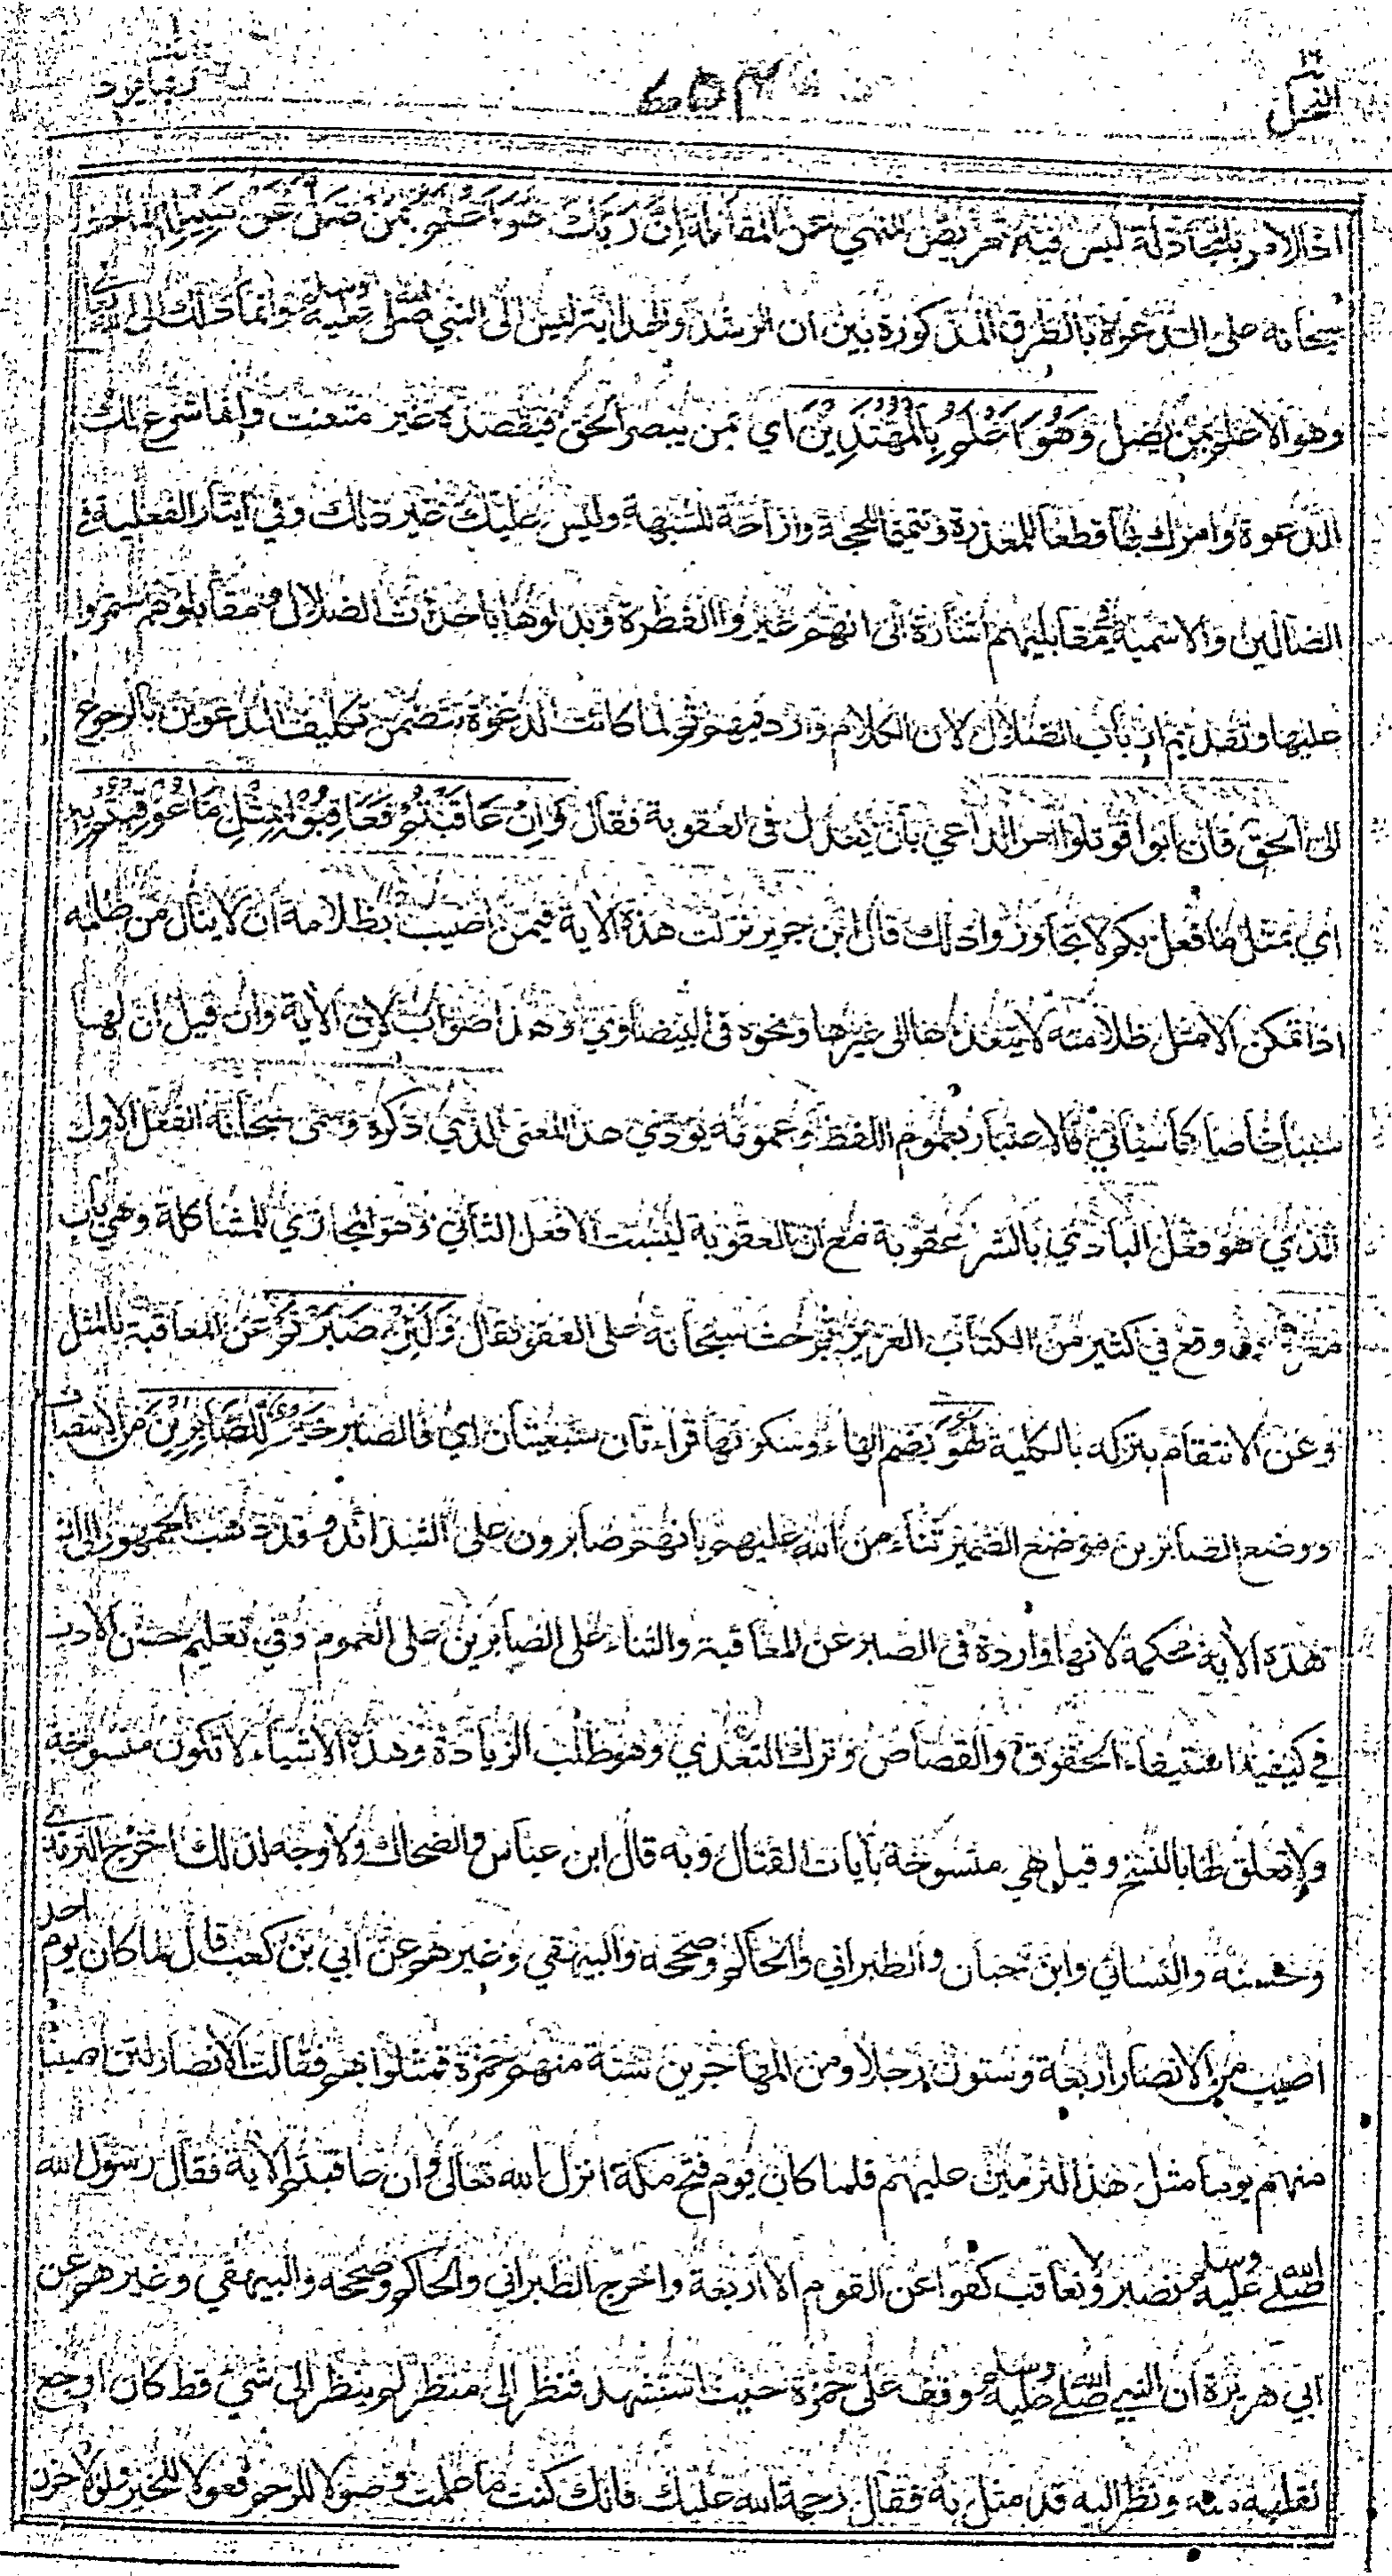 النحل
٦٥٣
ربما ١٤
اذ الامر بالمجادلة ليس فيه تعريض للنهي عن المقاتلة اِنَّ رَبَّكَ هُوَ اَعْلَمُ بِمَنْ ضَلَّ عَنْ سَبِيْلِهٖ لما حث
سبحانه على الدعوة بالطرق المذكورة بين ان الرشد والهداية ليس الى النبي صلى الله عليه وسلم وانما ذلك الى الله تعالى
وهو الاعلم بمن يضل وَهُوَ اَعْلَمُ بِالْمُهْتَدِيْنَ اي بمن يبصر الحق فيقصده غير متعنت وانما شرع لك
الدعوة وامرك بها قطعا للمعذرة وتتميما للحجة وازاحة للشبهة وليس عليك غير ذلك وفي ايثار الفعلية في
الضالين والاسمية في مقابليهم اشارة الى انهم غيروا الفطرة وبدلوها باحداث الضلال ومقابلوهم استمروا
عليها وتقديم ارباب الضلال لان الكلام وارد فيهم ثم لما كانت الدعوة تتضمن تكليف المدعوين بالرجوع
الى الحق فان ابوا قوتلوا امر الداعي بان يعدل في العقوبة فقال وَاِنْ عَاقَبْتُمْ فَعَاقِبُوْا بِمِثْلِ مَا عُوْقِبْتُمْ بِهٖ
اي بمثل ما فعل بكم لا تجاوزوا ذلك قال ابن جرير نزلت هذه الاية فيمن اصيب بظلامة ان لا ينال من ظالمه
اذا تمكن الا مثل ظلامته لا يتعداها الى غيرها ونحوه في البيضاوي وهذا صواب لان الاية وان قيل ان لها
سببا خاصا كما سياتي فالاعتبار بعموم اللفظ وعمومه يؤدي هذا المعنى الذي ذكره وسمى سبحانه الفعل الاول
الذي هو فعل البادي بالشر عقوبة مع ان العقوبة ليست الا فعل الثاني وهو المجازي للمشاكلة وهي باب
معروف وقع في كثير من الكتاب العزيز ثم حث سبحانه على العفو فقال وَلَئِنْ صَبَرْتُمْ عن المعاقبة بالمثل
وعن الانتقام بتركه بالكلية لَهُوَ بضم الهاء وسكونها قراءتان سبعيتان اي فالصبر خَيْرٌ لِّلصَّابِرِيْنَ من الانتصاف
ووضع الصابرين موضع الضمير ثناء من الله عليهم بانهم صابرون على الشدائد وقد ذهب الجمهور الى ان
هذه الاية محكمة لانها واردة في الصبر عن المعاقبة والثناء على الصابرين على العموم وفي تعليم حسن الادب
في كيفية استيفاء الحقوق والقصاص وترك التعدي وهو طلب الزيادة وهذه الاشياء لا تكون منسوخة
ولا تعلق لها بالنسخ وقيل هي منسوخة بآيات القتال وبه قال ابن عباس والضحاك ولا وجه لذلك اخرج الترمذي
وحسنه والنسائي وابن حبان والطبراني والحاكم وصححه والبيهقي وغيرهم عن ابي بن كعب قال لما كان يوم احد
اصيب من الانصار اربعة وستون رجلا ومن المهاجرين ستة منهم حمزة فمثلوا بهم فقالت الانصار لئن اصبنا
منهم يوما مثل هذا لنربين عليهم فلما كان يوم فتح مكة انزل الله تعالى وان عاقبتم الاية فقال رسول الله
صلى الله عليه وسلم نصبر ولا نعاقب كفوا عن القوم الا اربعة واخرج الطبراني والحاكم وصححه والبيهقي وغيرهم عن
ابي هريرة ان النبي صلى الله عليه وسلم وقف على حمزة حيث استشهد فنظر الى منظر لم ينظر الى شئ قط كان اوجع
لقلبه منه ونظر اليه قد مثل به فقال رحمة الله عليك فانك كنت ما علمت وصولا للرحم فعولا للخير ولولا حزن